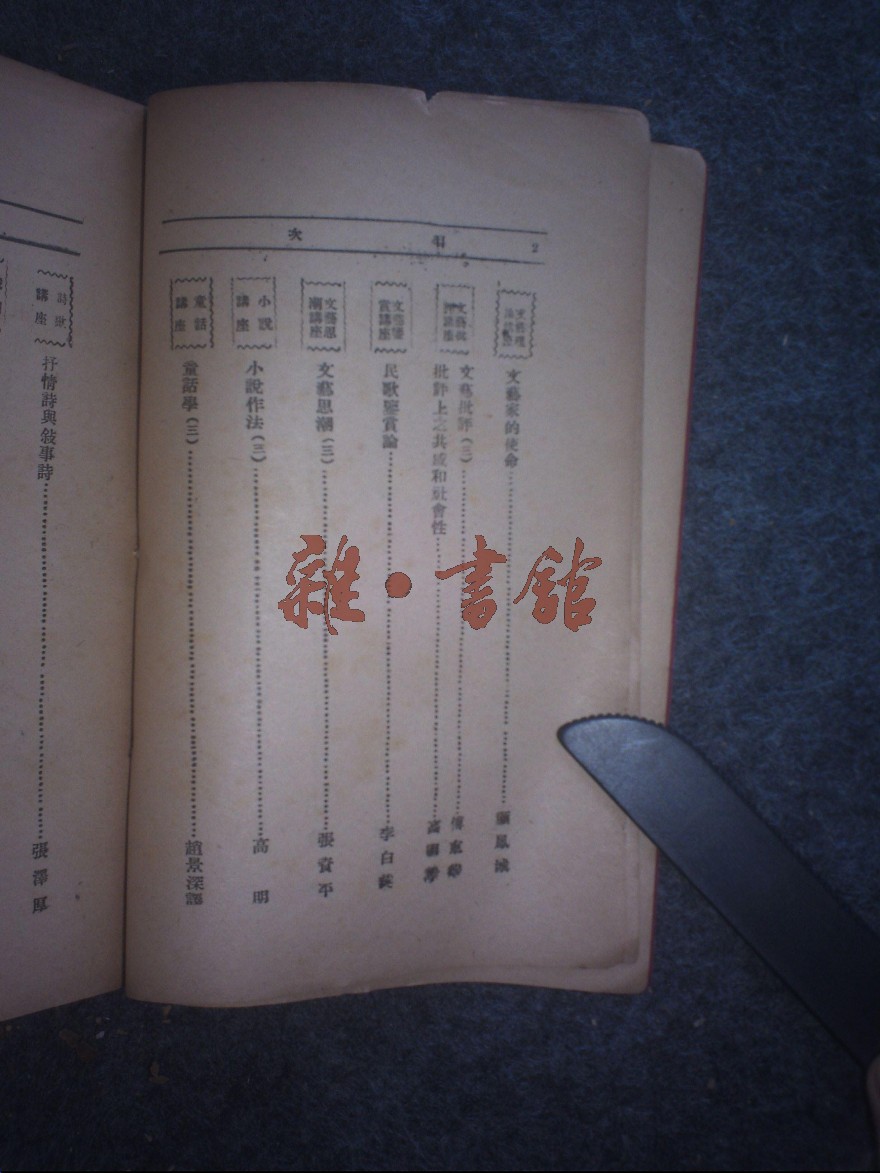 目次 2
文藝理論講座
文藝家的使命 顧鳳城
文藝批評講座
文藝批評(三) 傅東華
批評上之共感和社會性
文藝鑒賞講座
民歌鑒賞論 李白英
文藝思潮講座
文藝思潮(三) 張資平
小說講座
小說作法(三) 高明
童話講座
童話學(三) 趙景深
詩歌講座
抒情詩與敘事詩
雜·書館